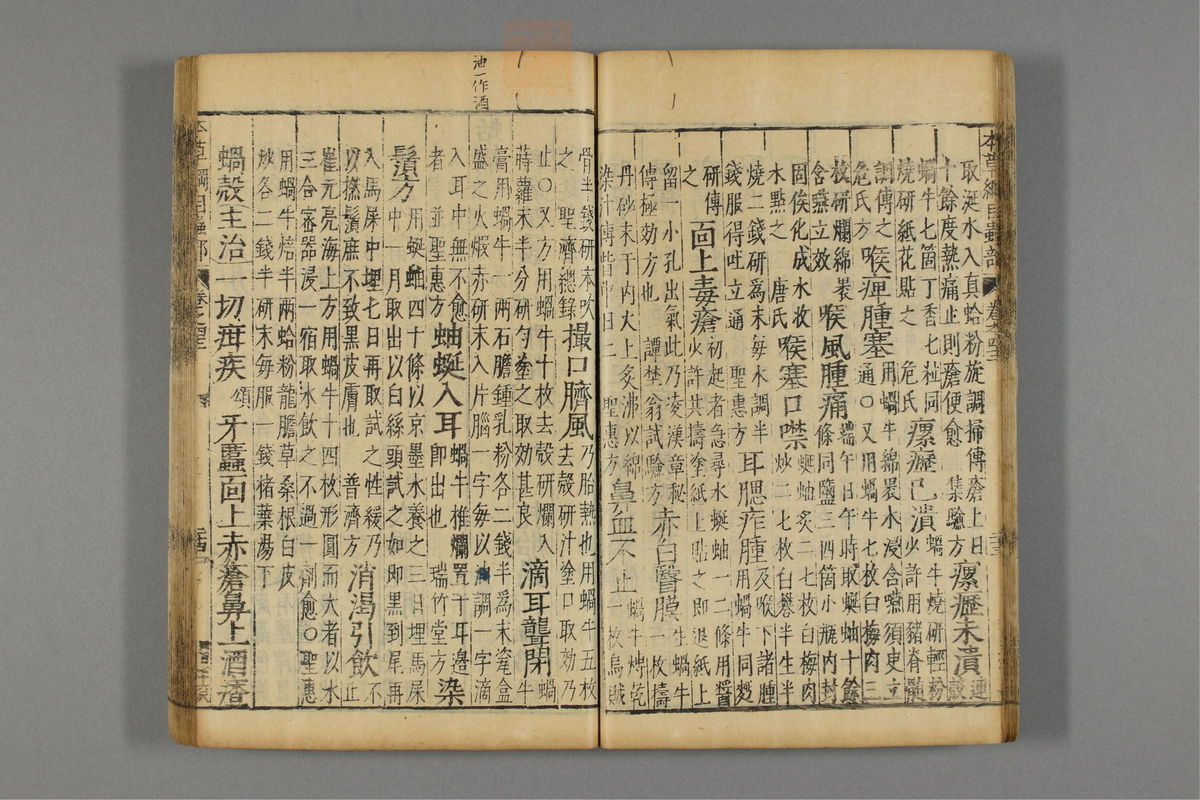 本草綱目蟲部 卷之四十二
取涎水入真蛤粉旋調掃傳瘡上日
十餘度熱痛止則瘡便愈 集驗方
瘰癧未潰 連殼
蝸牛七箇丁香七粒同
燒研紙花貼之 危氏
瘰癧已潰 蝸牛燒研輕粉
少許用豬脊髓
調傳之
危氏方
喉痺腫塞 用蝸牛綿裹水浸含嚥須臾立
通〇又用蝸牛七枚白梅肉三
枚研爛綿裹
含嚥立效
喉風腫痛 端午日午時取蜒蚰十餘
條同鹽三四箇小瓶内封
固俟化成水收
水點之 唐氏
喉塞口噤 蜒蚰炙二七枚白梅肉
炒二七枚白礬半生半
燒二錢研爲末每水調半
錢服得吐立通 聖惠方
耳腮痄腫 及喉下諸腫
用蝸牛同麪
研傳
之
面上毒瘡 初起者急尋水蜒蚰一二條用醬
少許共擣塗紙上貼之即退紙上
留一小孔出氣此乃凌漢章秘
傳極効方也 譚埜翁試驗方
赤白翳膜 生蝸牛
一枚擣
丹砂末于内火上炙沸以綿
染汁傳眥中日二 聖惠方
鼻血不止 蝸牛焙乾
一枚烏賊
油一作酒
骨半錢研末吹
之 聖濟總錄
撮口臍風 乃胎熱也用蝸牛五枚
去殼研汁塗口取効乃
止〇又方用蝸牛十枚去殼研爛入
蒔蘿末半分研勻塗之取効甚良
滴耳聾閉 蝸牛
膏用蝸牛一兩石膽鍾乳粉各二錢半爲末瓷盒
盛之火煅赤研末入片腦一字每以油調一字滴
入耳中無不愈
者 並聖惠方
蚰蜒入耳 蝸牛椎爛置于耳邊
即出也 瑞竹堂方
染
鬚方 用蜒蚰四十條以京墨水養之三日埋馬屎
中一月取出以白絲頭試之如即黑到尾再
入馬屎中埋七日再取試之性緩乃
以撚鬚庶不致黑皮膚也 普濟方
消渴引飲 不止
崔元亮海上方用蝸牛十四枚形圓而大者以水
三合密器浸一宿取水飲之不過三劑愈〇聖惠
用蝸牛焙半兩蛤粉龍膽草桑根白皮
炒各二錢半研末每服一錢楮葉湯下
蝸殼主治一切疳疾 頌 牙䘌面上赤瘡鼻上酒齄
本草綱目蟲部 卷之四十二